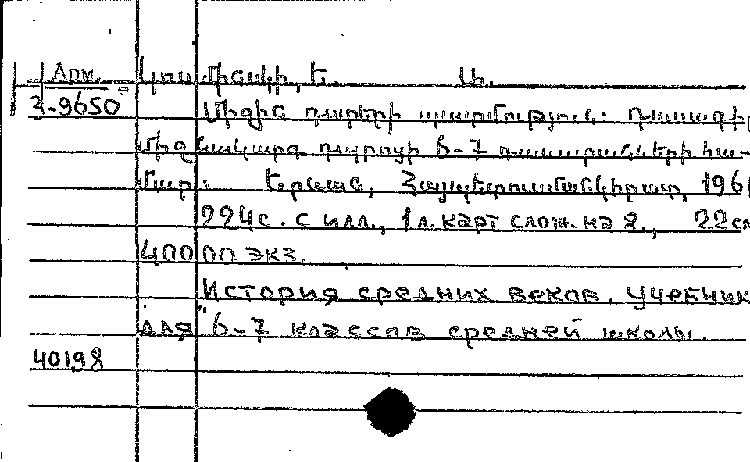 Арм. Կոսմինսկի, Ե. Ա.
3-9650 Միջին դարերի պատմություն: Դասագի
միջնակարգ դպրոցի 6-7 դասարանների հա-
մար: Երևան, Հայպետուսմանկհրատ, 196
224с. с илл., 1л. карт слож. на 2., 22см
40000 экз.
История средних веков. Учебник
для 6-7 классов средней школы.
40198